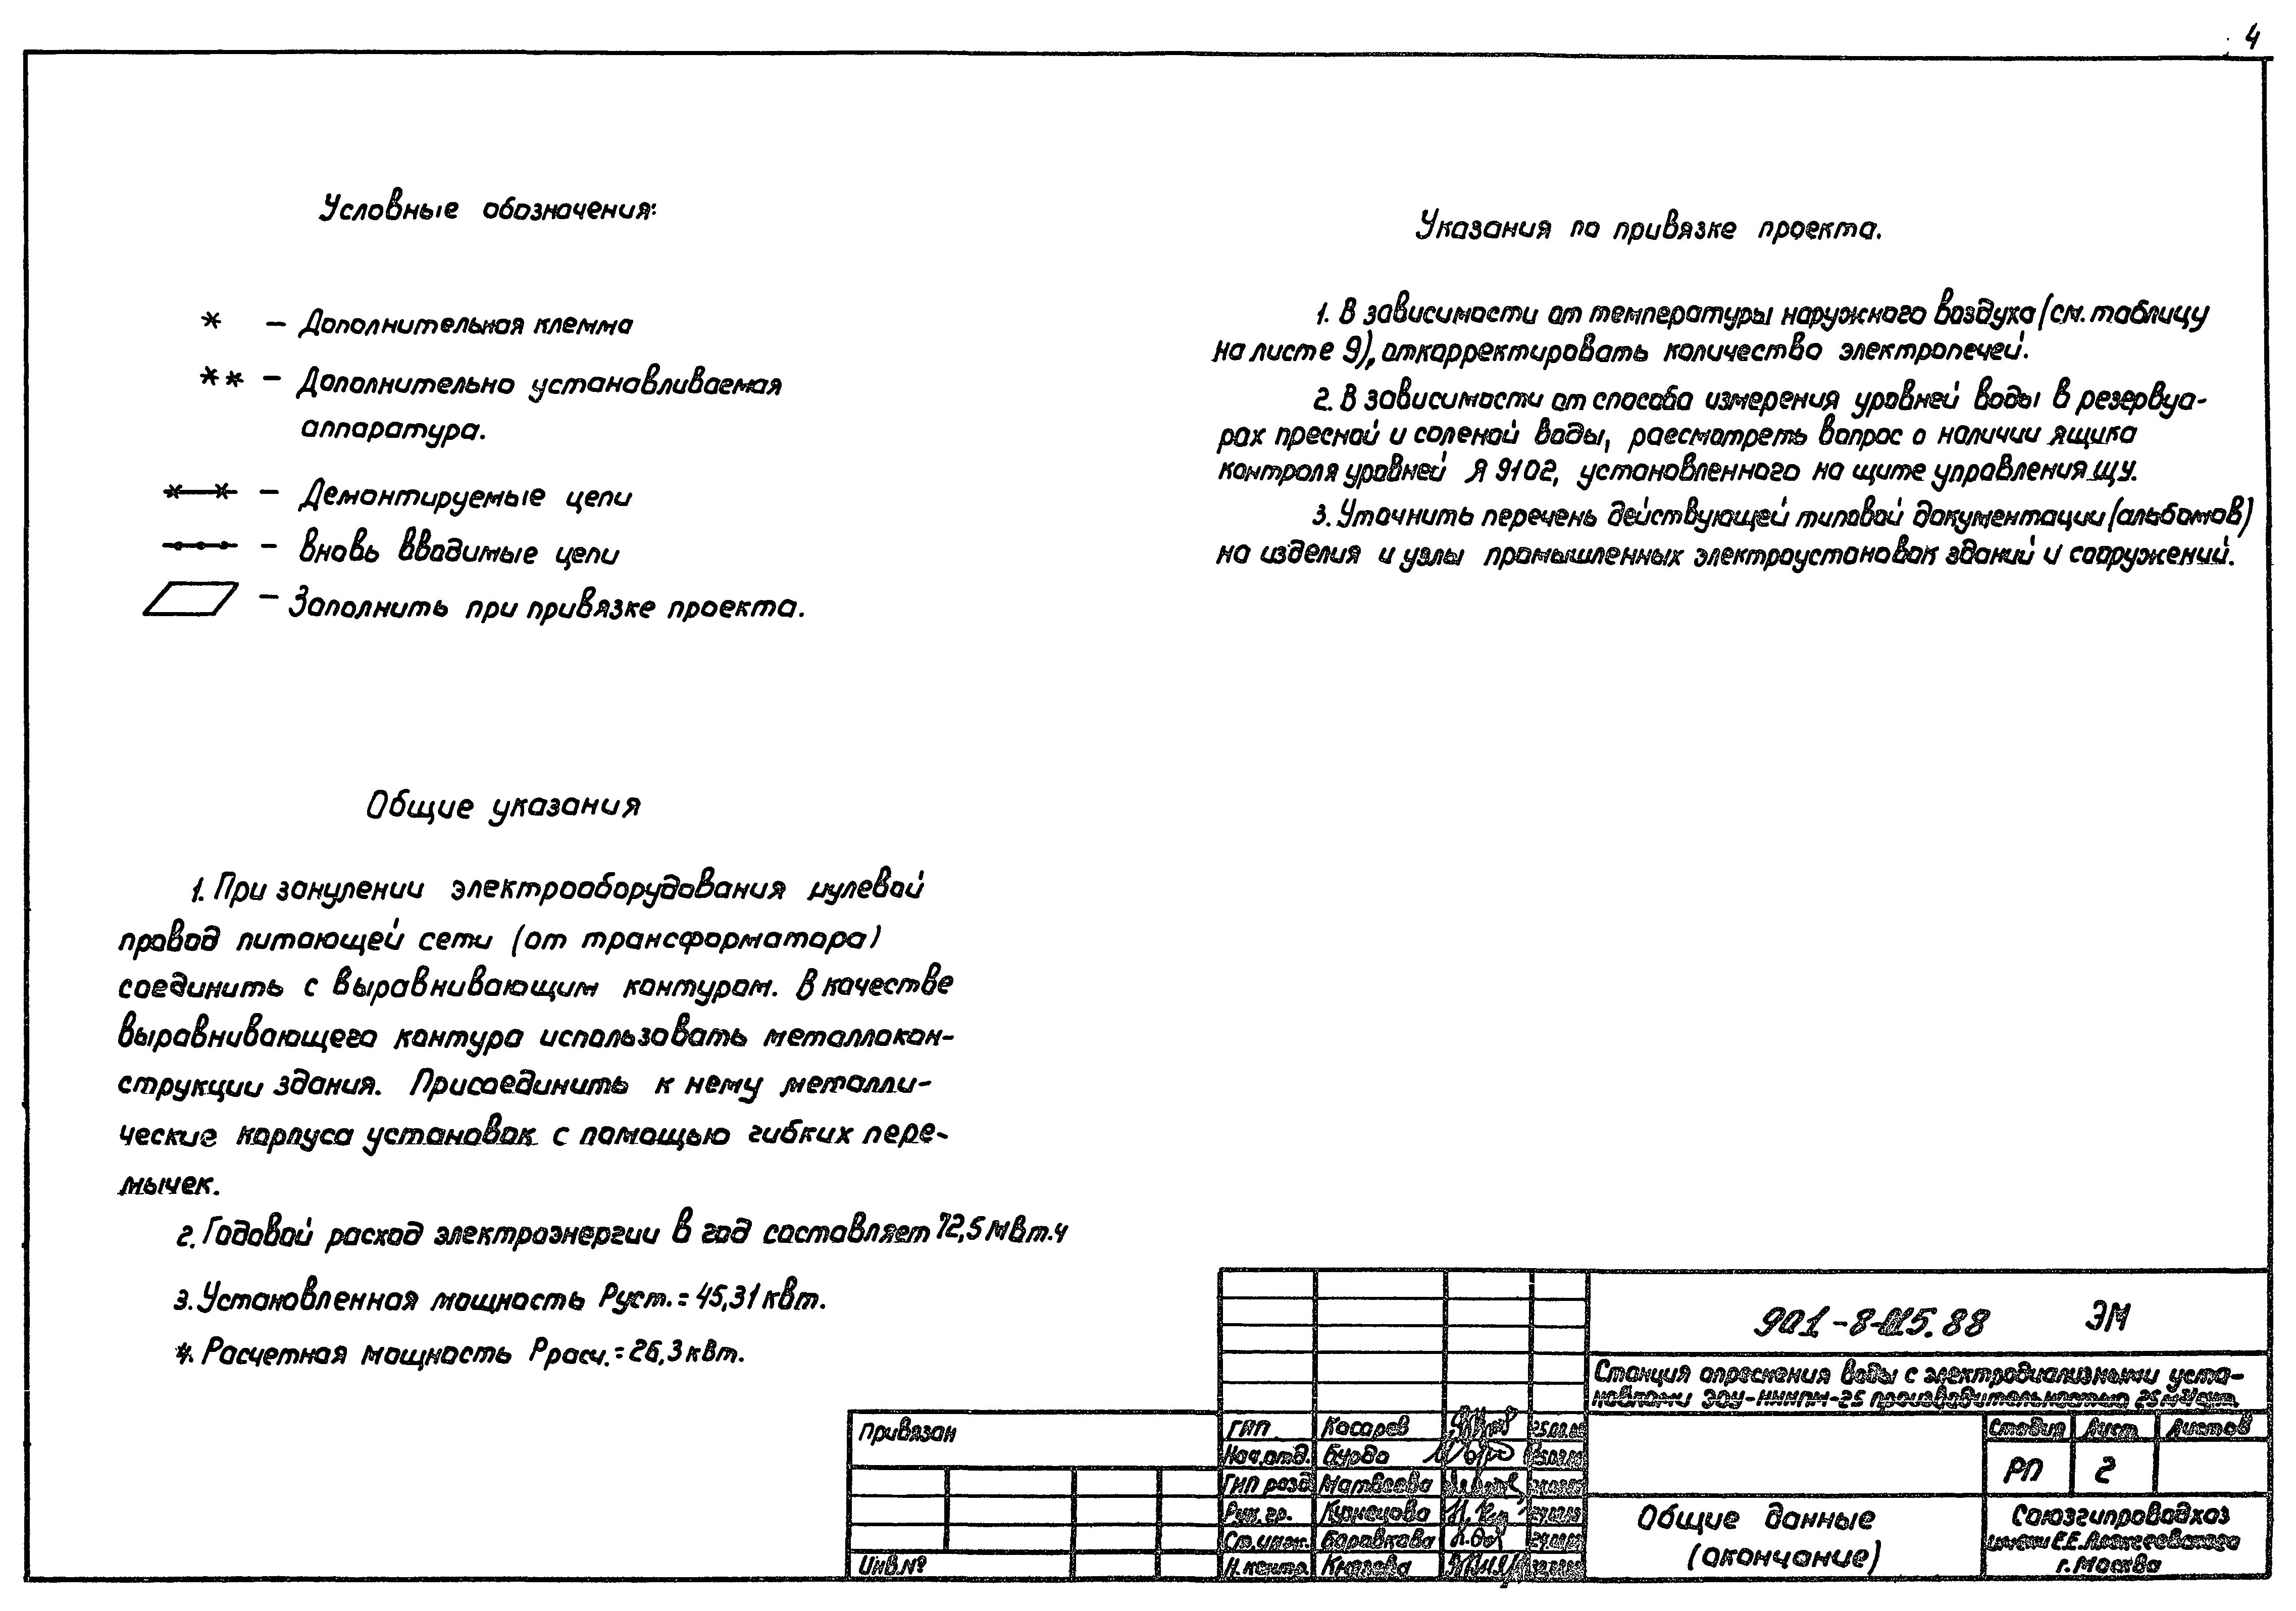 4
Условные обозначения:
* – Дополнительная клемма
** – Дополнительно устанавливаемая
аппаратура.
– Демонтируемые цепи
– вновь вводимые цепи
– Заполнить при привязке проекта.
Общие указания
1. При занулении электрооборудования нулевой
провод питающей сети (от трансформатора)
соединить с выравнивающим контуром. В качестве
выравнивающего контура использовать металлокон-
струкции здания. Присоединить к нему металли-
ческие корпуса установок с помощью гибких пере-
мычек.
2. Годовой расход электроэнергии в год составляет 72,5 мвт.ч
3. Установленная мощность Руст. = 45,31 квт.
4. Расчетная мощность Ррасч. = 26,3 квт.
Указания по привязке проекта.
1. В зависимости от температуры наружного воздуха (см. таблицу
на листе 9), откорректировать количество электропечей.
2. В зависимости от способа измерения уровней воды в резервуа-
рах пресной и соленой воды, рассмотреть вопрос о наличии ящика
контроля уровней Я 9102, установленного на щите управления щу.
3. Уточнить перечень действующей типовой документации (альбомов)
на изделия и узлы промышленных электроустановок зданий и сооружений.
901-8- 5.88 ЭМ
Станция опреснения воды с электродиализными уста-
новками ЭОУ-НИИПМ-25 производительностью
Привязан
Инв.№
ГИП Косарев
Нач.отд. Бурда
ГИП разд Матвеева
Рук. гр. Кузнецова
Ст.инж. Боровкова
Н.контр. Князева
Стадия Лист Листов
РП 2
Общие данные
(окончание)
Союзгипроводхоз
имени Е.Е. Алексеевского
г. Москва